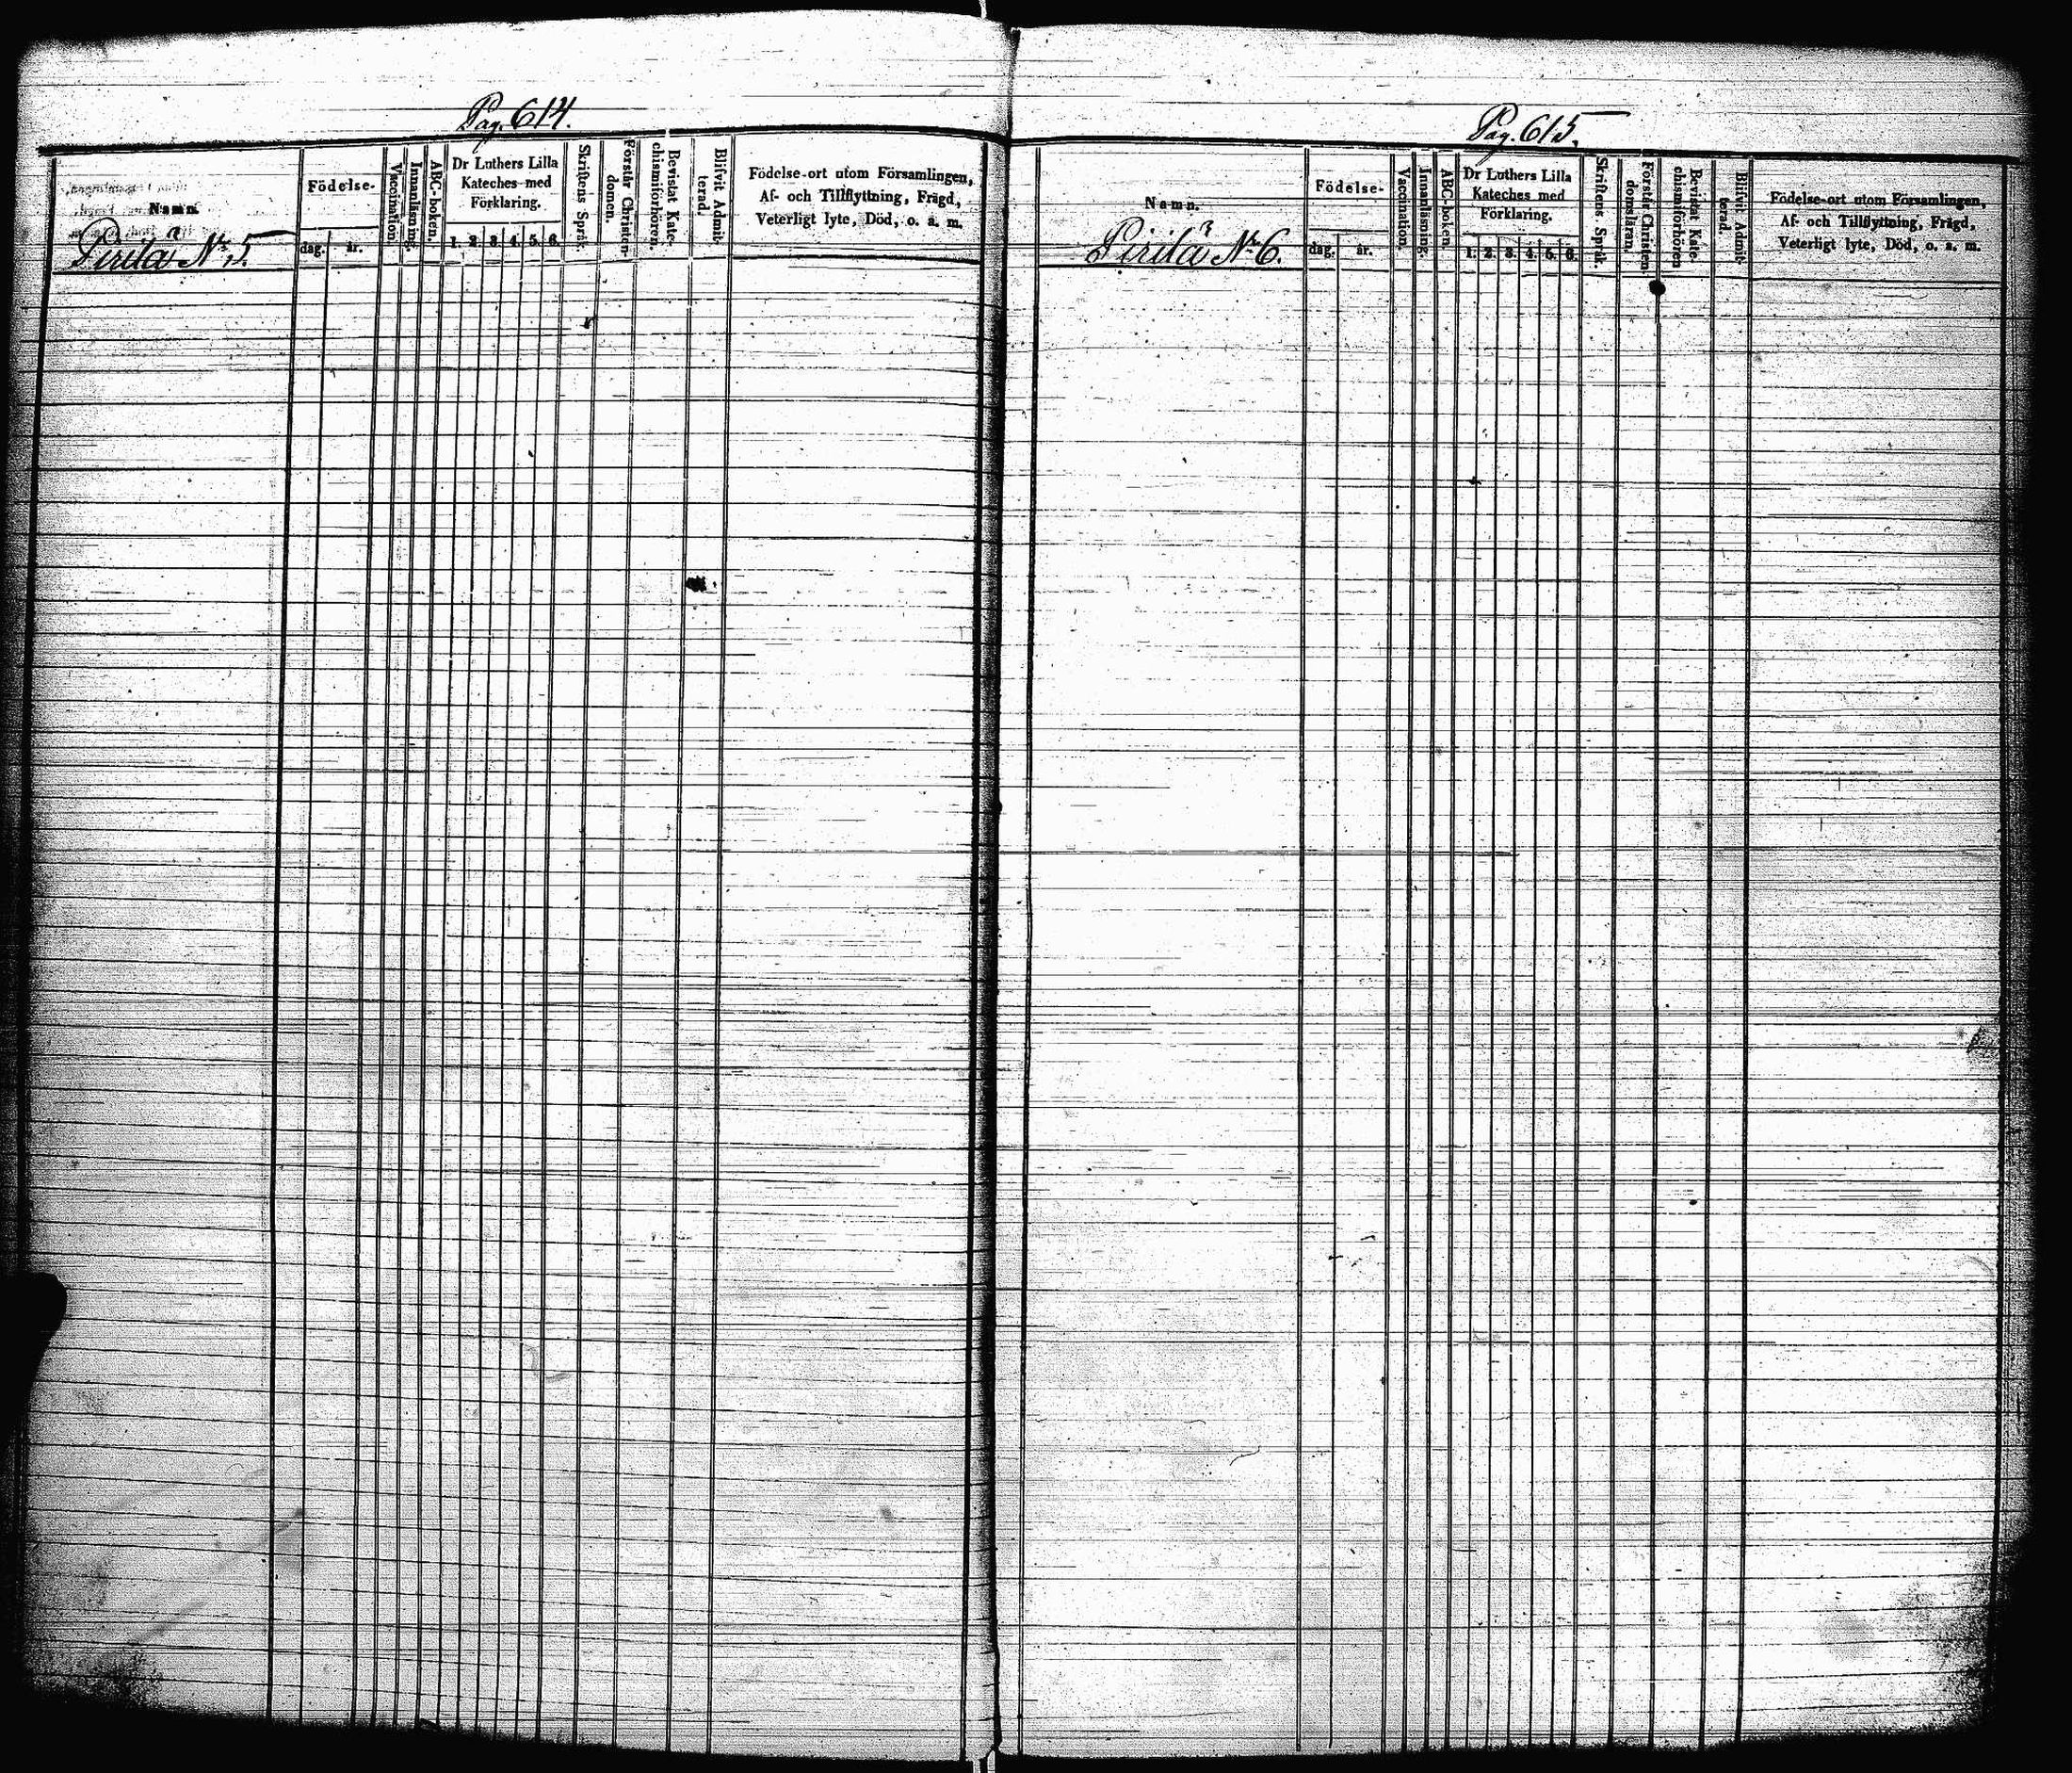 Pag. 614.
Namn.
Födelse-
dag. år.
Vaccination.
Innanläsning.
ABC-boken.
Dr Luthers Lilla
Kateches med
Förklaring.
1. 2. 3. 4. 5. 6.
Skriftens Språk.
Förstår Christen-
domen.
Bevistat Kate-
chismiförhören.
Blifvit Admit-
terad.
Födelse-ort utom Församlingen,
Af- och Tillflyttning, Frägd,
Veterligt lyte, Död, o. a. m.
Pirilä No 5.
Pag. 615.
Namn.
Födelse-
dag. år.
Vaccination.
Innanläsning.
ABC-boken.
Dr Luthers Lilla
Kateches med
Förklaring.
1. 2. 3. 4. 5. 6.
Skriftens Språk.
Förstår Christen-
domsläran.
Bevistat Kate-
chismiförhören
Blifvit Admit-
terad.
Födelse-ort utom Församlingen,
Af- och Tillflyttning, Frägd,
Veterligt lyte, Död, o. a. m.
Pirilä No 6.